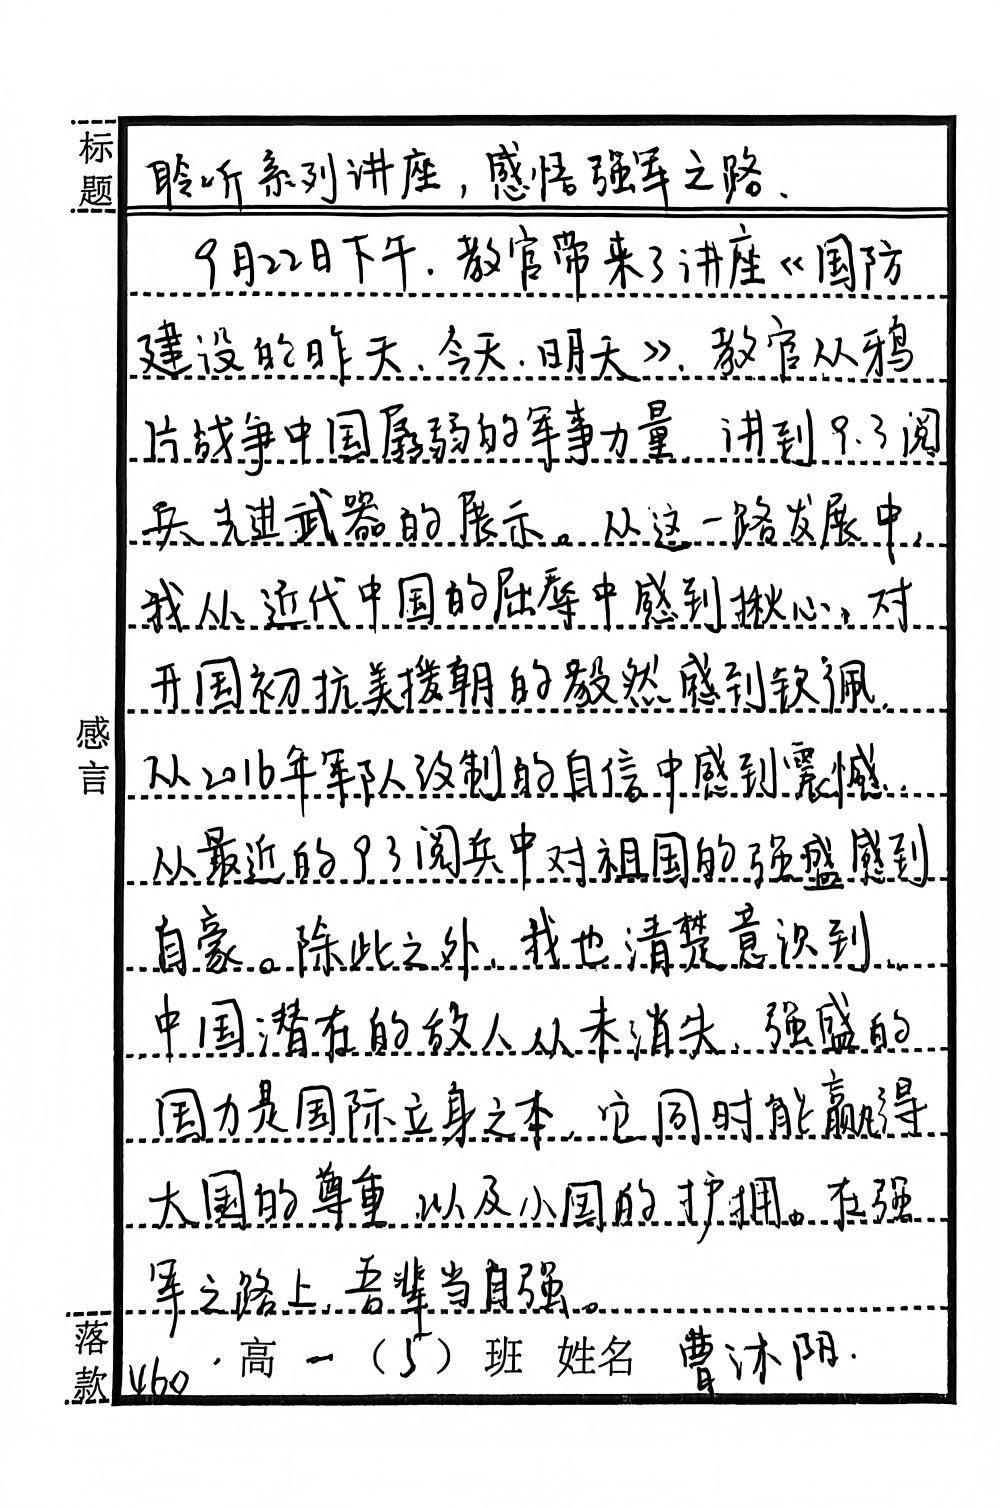 标题
聆听系列讲座,感悟强军之路、
9月22日下午,教官带来了讲座《国防
建设的昨天、今天、明天》,教官从鸦
片战争中国孱弱的军事力量,讲到9.3阅
兵先进武器的展示。从这一路发展中,
我从近代中国的屈辱中感到揪心,对
开国初抗美援朝的毅然感到钦佩,
从2016年军队改制的自信中感到震憾,
从最近的93阅兵中对祖国的强盛感到
感言
自豪。除此之外,我也清楚意识到,
中国潜在的敌人从未消失,强盛的
国力是国际立身之本,它同时能赢得
大国的尊重,以及小国的护拥。在强
军之路上,吾辈当自强。
落款
460 · 高一(5)班 姓名 曹沐阴.